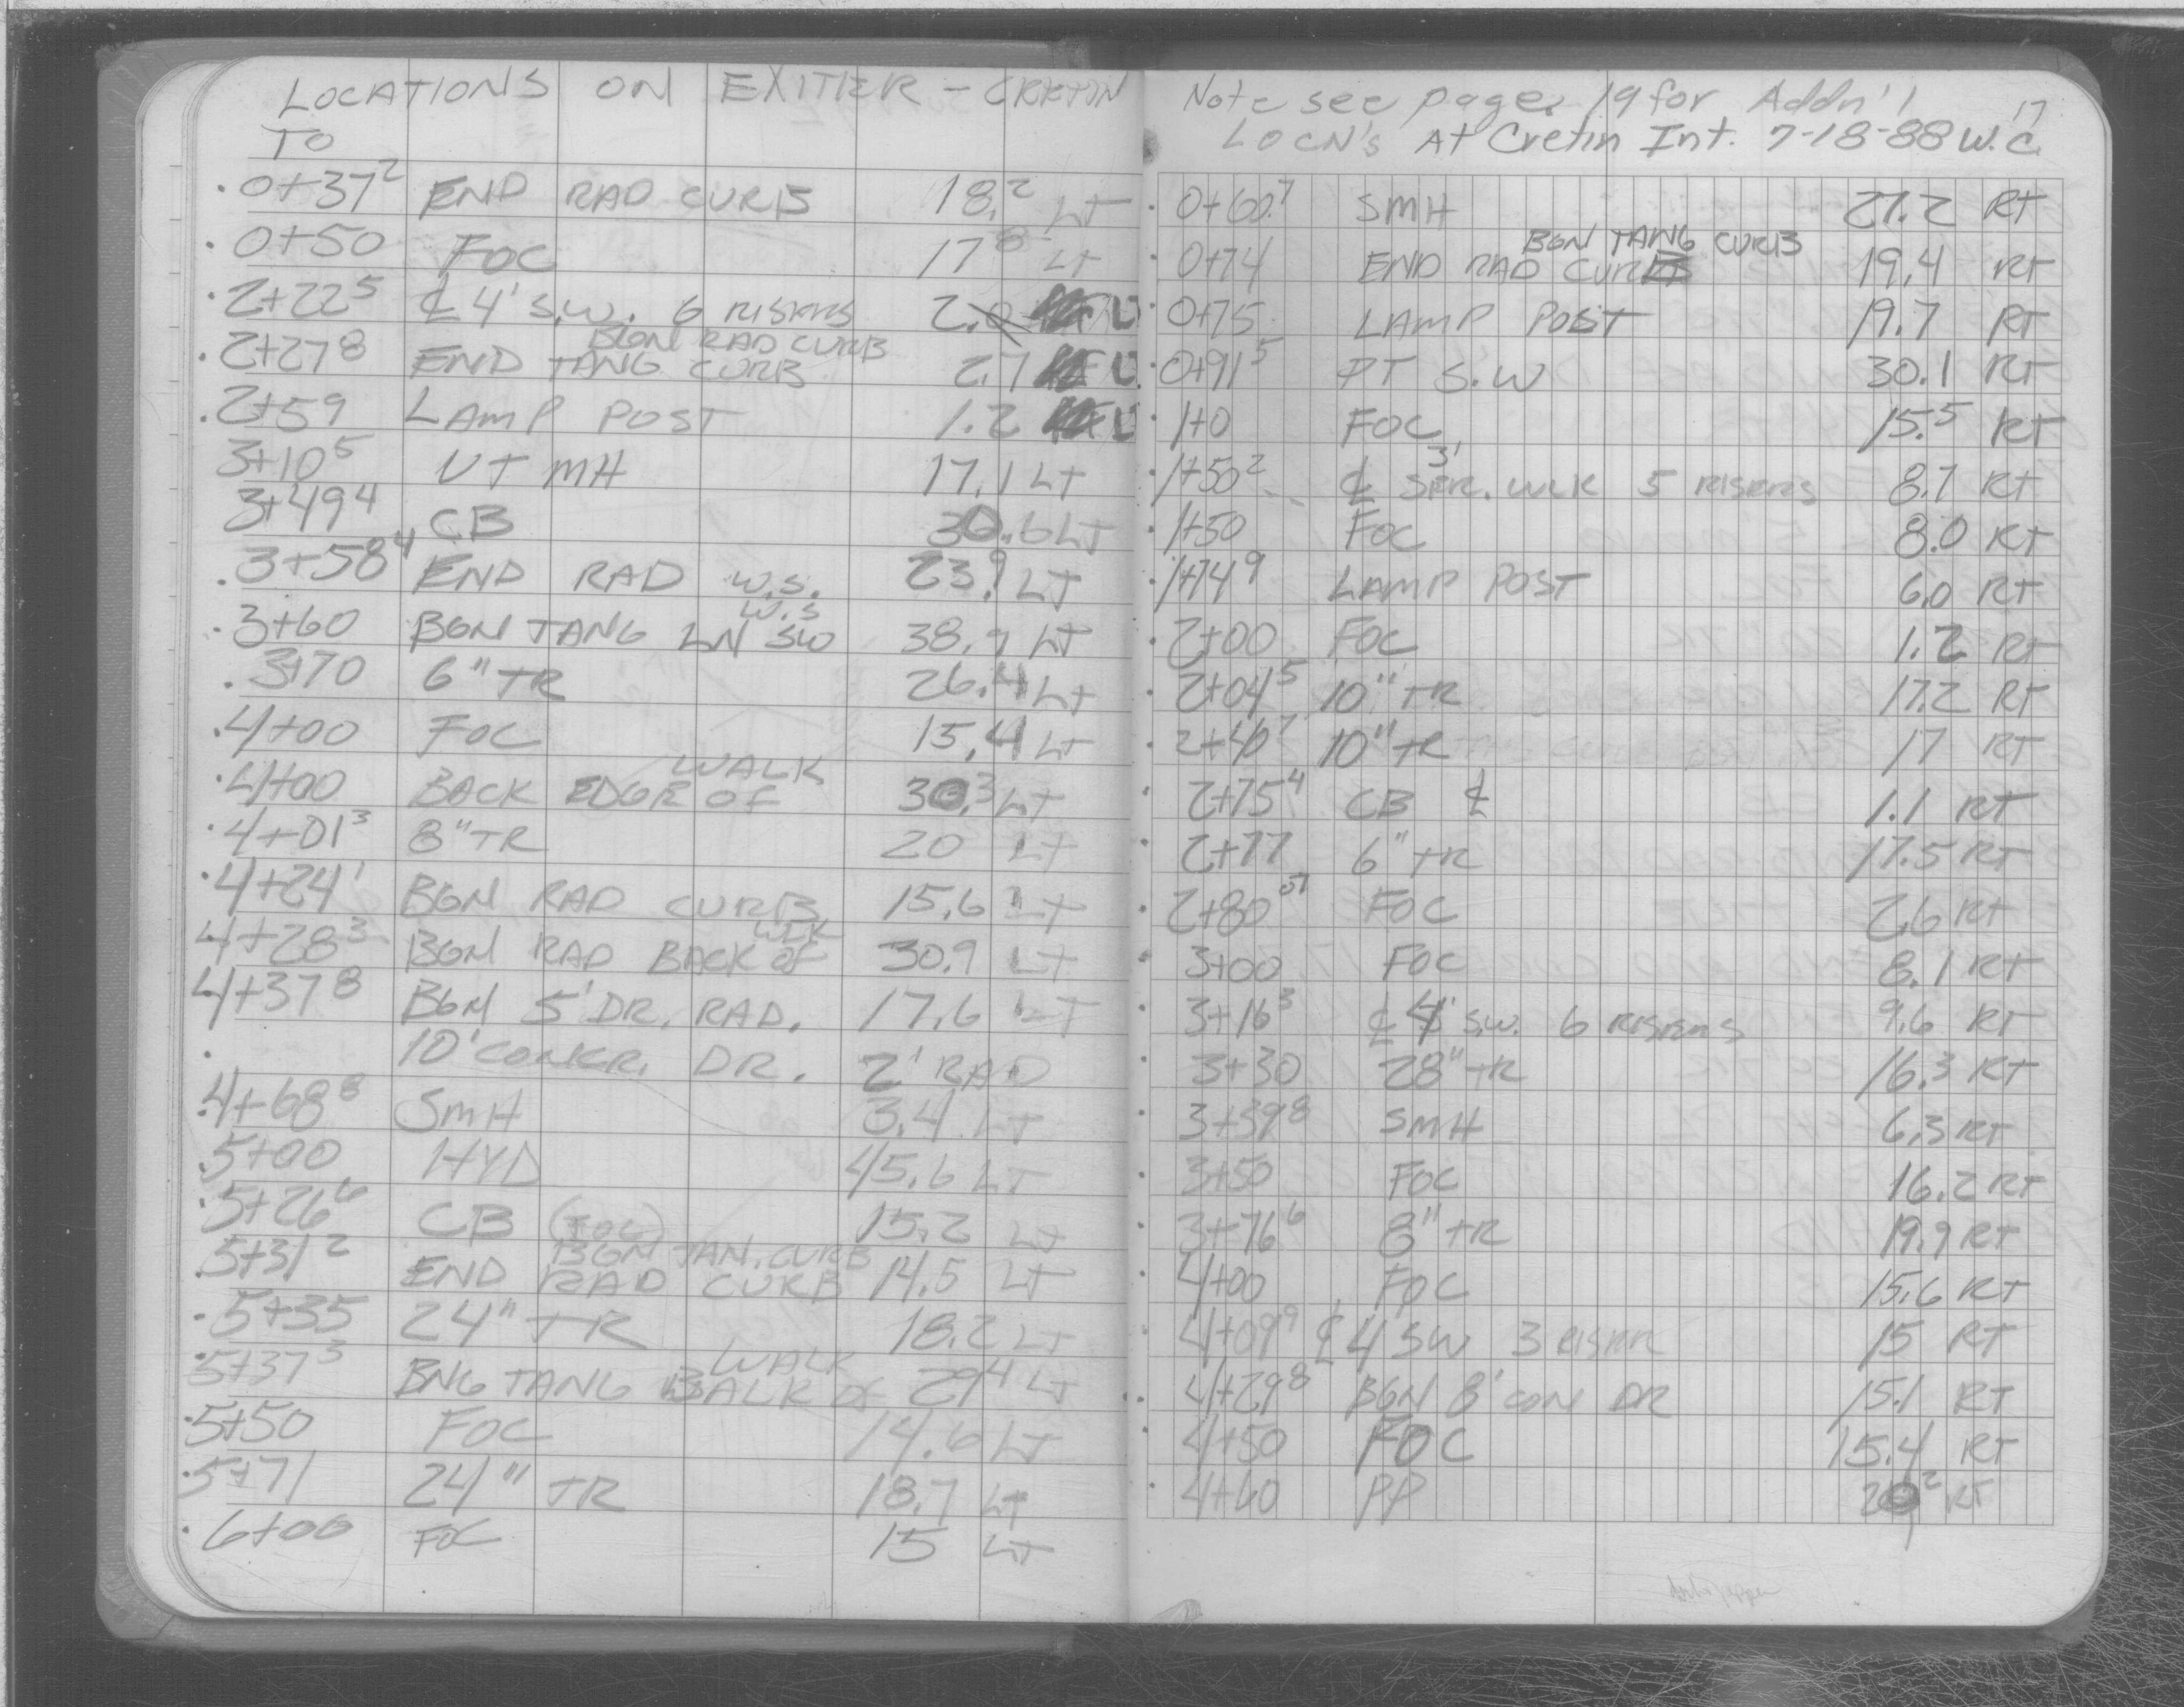 LOCATIONS ON EXITER - CRETON
TO
0+37² END RAD CURB 18.² LT
0+50 FOC 17⁸ LT
2+22⁵ ℄ 4' S.W. 6 RISERS 2.0
BGN RAD CURB
2+27⁸ END TANG CURB 2.7
2+59 LAMP POST 1.2
3+10⁵ UT MH 17.1 LT
3+49⁴ CB 30.6 LT
3+58⁴ END RAD W.S. 23.9 LT
W.S
3+60 BGN TANG LN SW 38.9 LT
3+70 6" TR 26.4 LT
4+00 FOC 15.4 LT
WALK
4+00 BACK EDGE OF 30.3 LT
4+01³ 8" TR 20 LT
4+24¹ BGN RAD CURB 15.6 LT
WLK
4+28³ BGN RAD BACK OF 30.9 LT
4+37⁸ BGN 5' DR. RAD. 17.6 LT
10' CONCR. DR. 2' RAD
4+68⁸ SMH 3.4 LT
5+00 HYD 45.6 LT
5+26⁶ CB (FOC) 15.2 LT
BGN TAN. CURB
5+31² END RAD CURB 14.5 LT
5+35 24" TR 18.2 LT
WALK
5+37³ BNG TANG BALK OF 29⁴ LT
5+50 FOC 14.6 LT
5+71 24" TR 18.7 LT
6+00 FOC 15 LT
Note see page 19 for Addn'l 17
LOCN's At Cretin Int. 7-18-88 W.C.
0+60.⁷ SMH 27.2 RT
BGN TANG CURB
0+74 END RAD CURB 19.4 RT
0+75 LAMP POST 19.7 RT
0+91⁵ PT S.W 30.1 RT
1+0 FOC 15.⁵ RT
3'
1+50² ℄ SER. WLK 5 RISERS 8.7 RT
1+50 FOC 8.0 RT
1+74⁹ LAMP POST 6.0 RT
2+00 FOC 1.2 RT
2+04⁵ 10" TR 17.2 RT
2+40⁷ 10" TR 17 RT
2+75⁴ CB ℄ 1.1 RT
2+77 6" TR 17.5 RT
2+80 FOC 2.6 RT
3+00 FOC 8.1 RT
3+16³ ℄ 4' S.W. 6 RISERS 9.6 RT
3+30 28" TR 16.3 RT
3+39⁸ SMH 6.3 RT
3+50 FOC 16.2 RT
3+76⁶ 8" TR 19.9 RT
4+00 FOC 15.6 RT
4+09⁹ ℄ 4' SW 3 RISER 15 RT
4+29⁸ BGN 8' CON DR 15.1 RT
4+50 FOC 15.4 RT
4+60 PP 20² RT